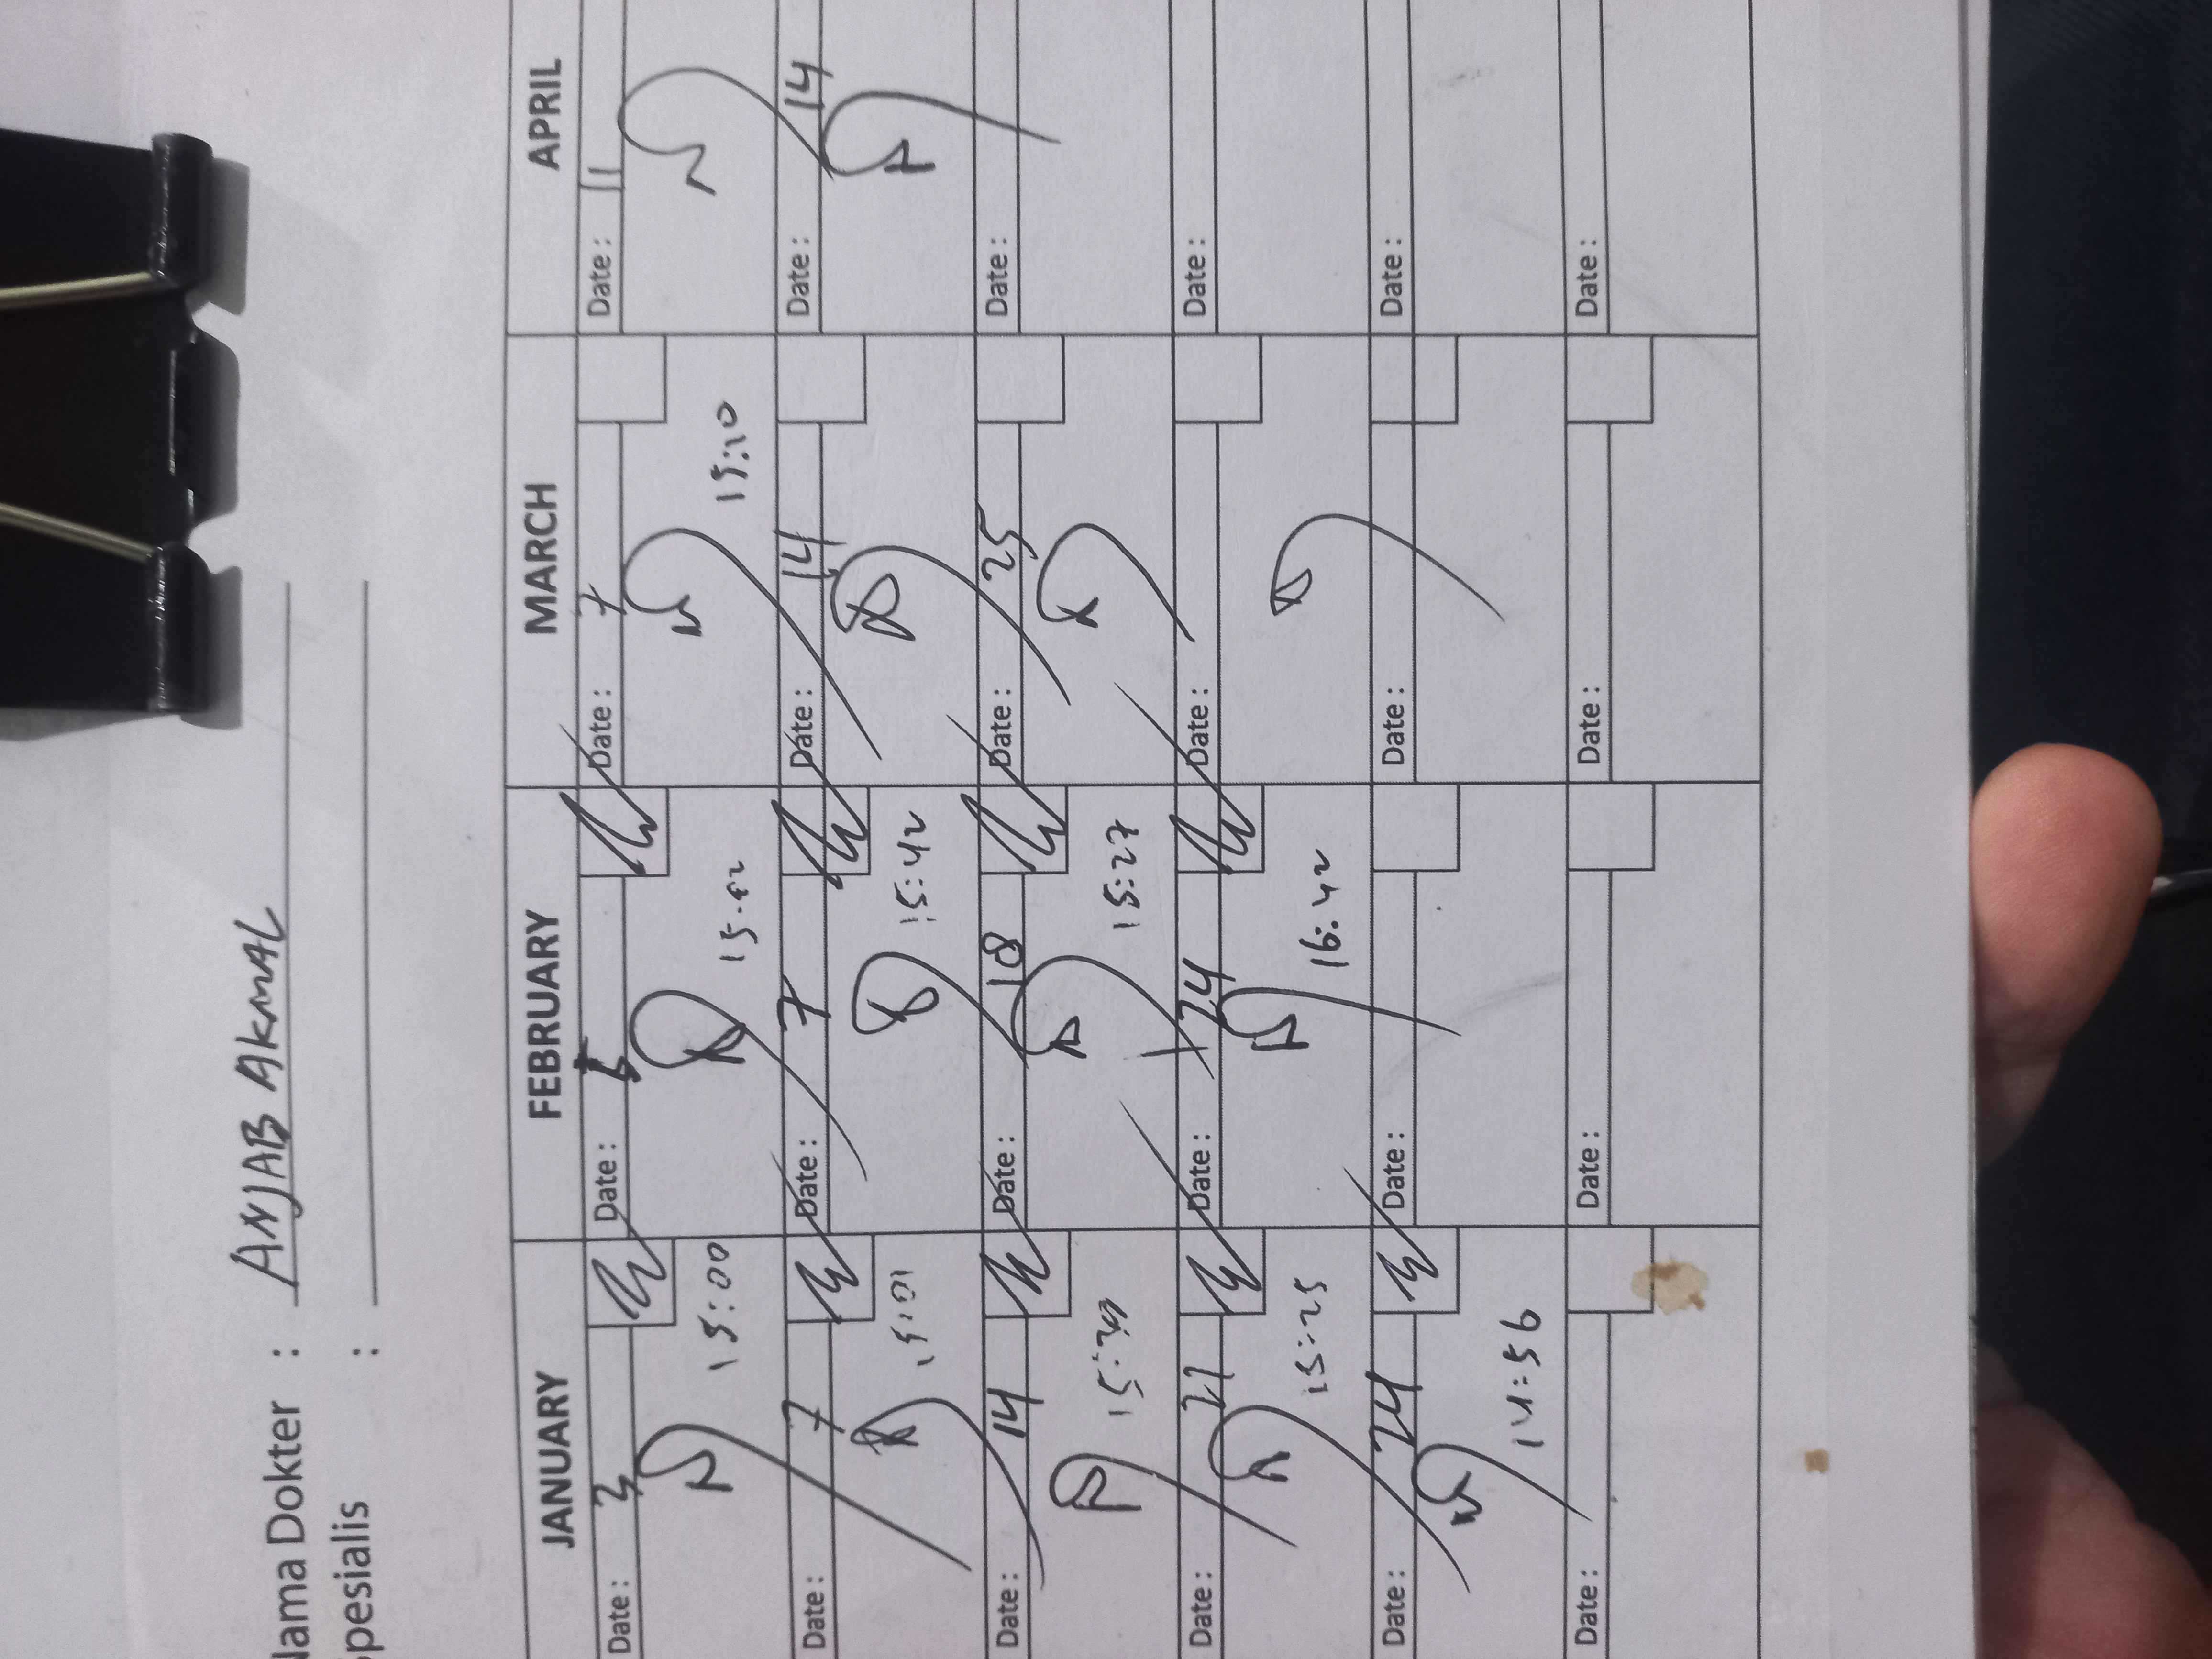 Nama Dokter : ANJAB AKMAL
Spesialis :
JANUARY FEBRUARY MARCH APRIL
Date : 3 Date : 5 Date : 7 Date : 11
15:00 15:10
Date : 7 Date : 7 Date : 14 Date : 14
15:01 15:42
Date : 14 Date : 18 Date : 25 Date :
15:27
Date : 21 Date : 24 Date : Date :
15:25 16:42
Date : 24 Date : Date : Date :
14:56
Date : Date : Date : Date :